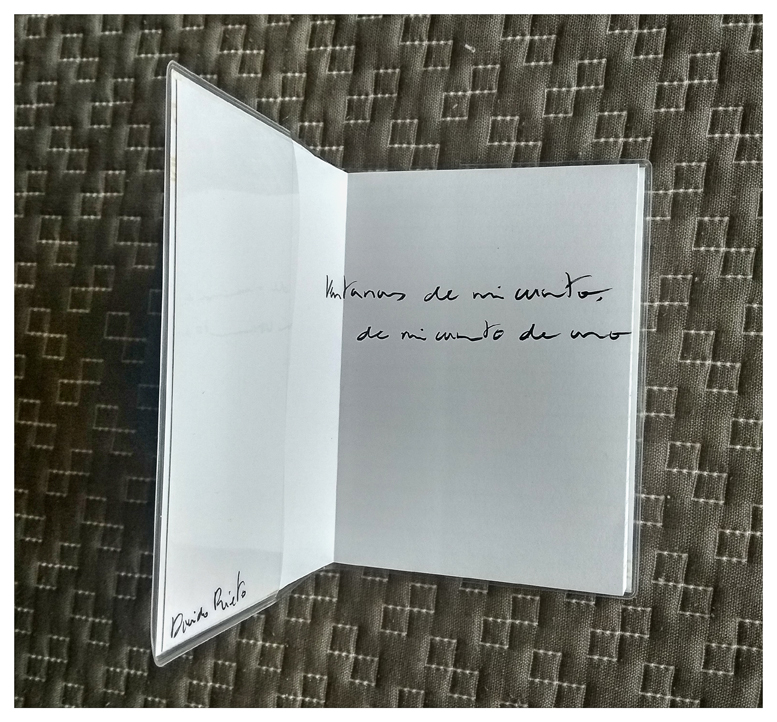 Prieto
Ventanas de mi cuarto,
de mi cuarto de uno